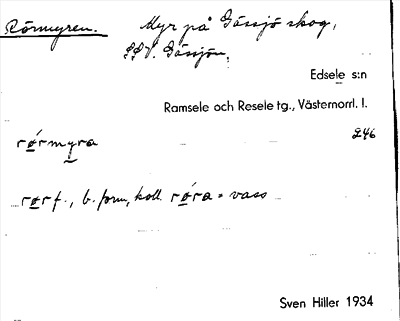 Rörmyren. Myr på Gässjö skog,
SSV. Gässjön.
Edsele s:n
Ramsele och Resele tg., Västernorrl. l.
246
rørmyra
rør f., b. form, koll. røra = vass
Sven Hiller 1934